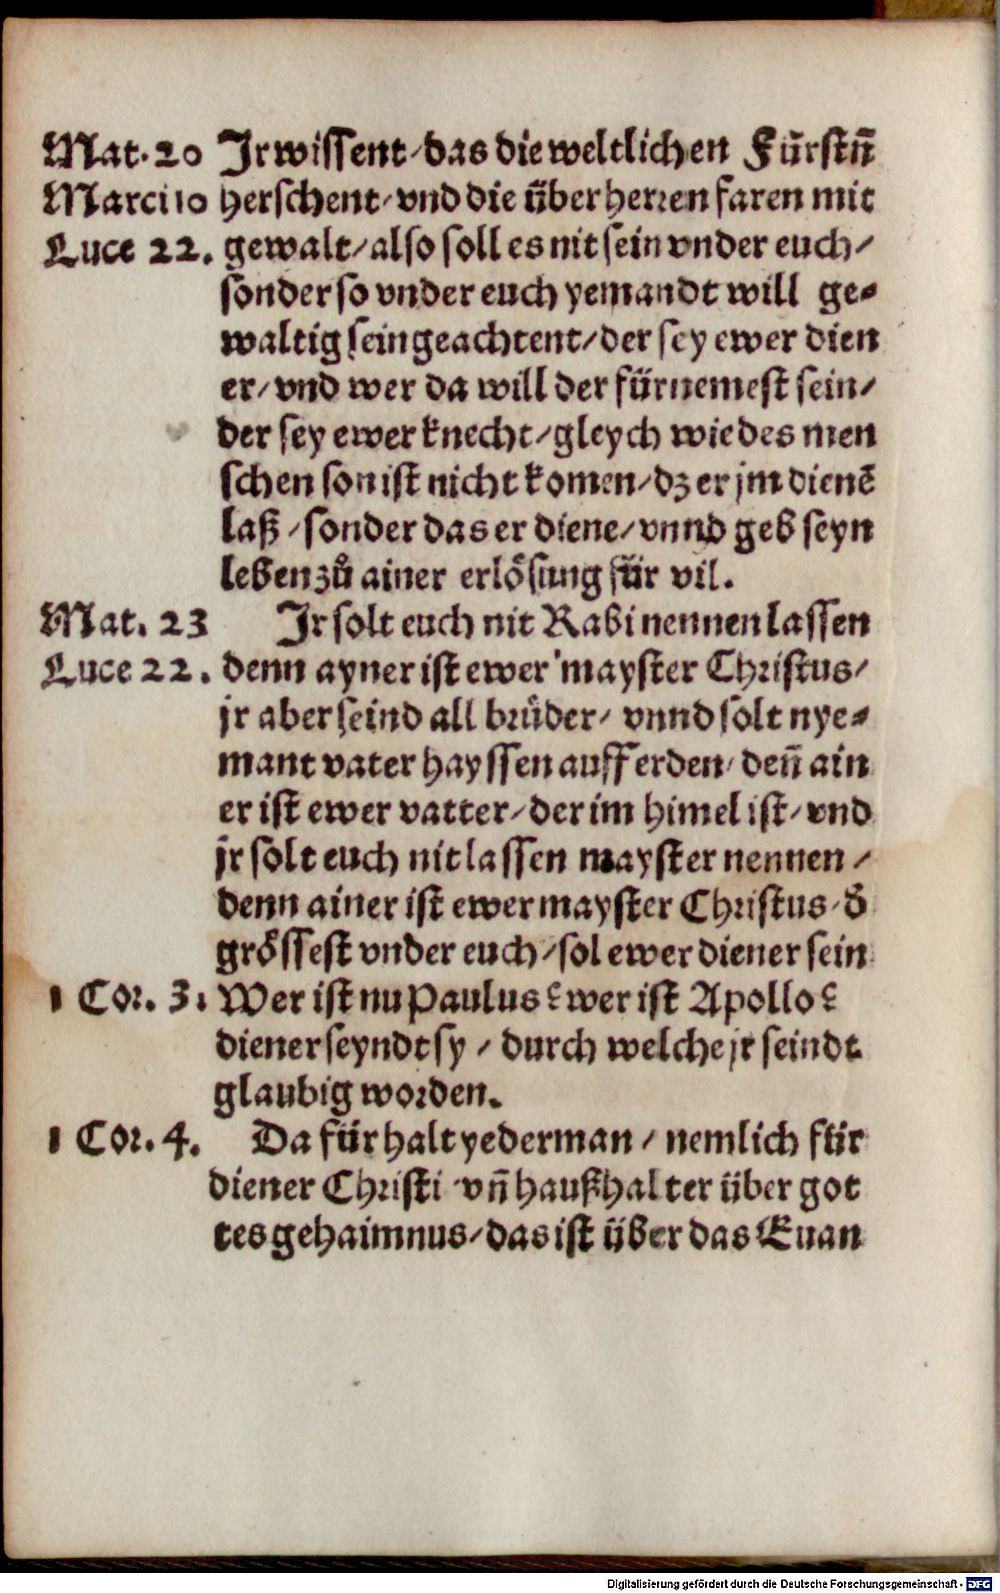 Mat. 20 Jr wissent / das die weltlichen Fürstñ
Marci 10 herschent / vnd die überherren faren mit
Luce 22. gewalt / also soll es nit sein vnder euch /
sonder so vnder euch yemandt will ge⸗
waltig sein geachtent / der sey ewer dien
er / vnd wer da will der fürnemest sein /
der sey ewer knecht / gleych wie des men
schen son ist nicht komen / dz er jm dienē
laß / sonder das er diene / vnnd geb seyn
leben zů ainer erlösung für vil.
Mat. 23 Jr solt euch nit Rabi nennen lassen
Luce 22. denn ayner ist ewer mayster Christus /
jr aber seind all brüder / vnnd solt nye⸗
mant vater hayssen auff erden / deñ ain
er ist ewer vatter / der im himel ist / vnd
jr solt euch nit lassen mayster nennen /
denn ainer ist ewer mayster Christus / d̄
grössest vnder euch / sol ewer diener sein
1 Cor. 3. Wer ist nu Paulus? wer ist Apollo?
diener seyndt sy / durch welche jr seindt
glaubig worden.
1 Cor. 4. Da für halt yederman / nemlich für
diener Christi vñ haußhalter über got
tes gehaimnus / das ist über das Euan
Digitalisierung gefördert durch die Deutsche Forschungsgemeinschaft - DFG